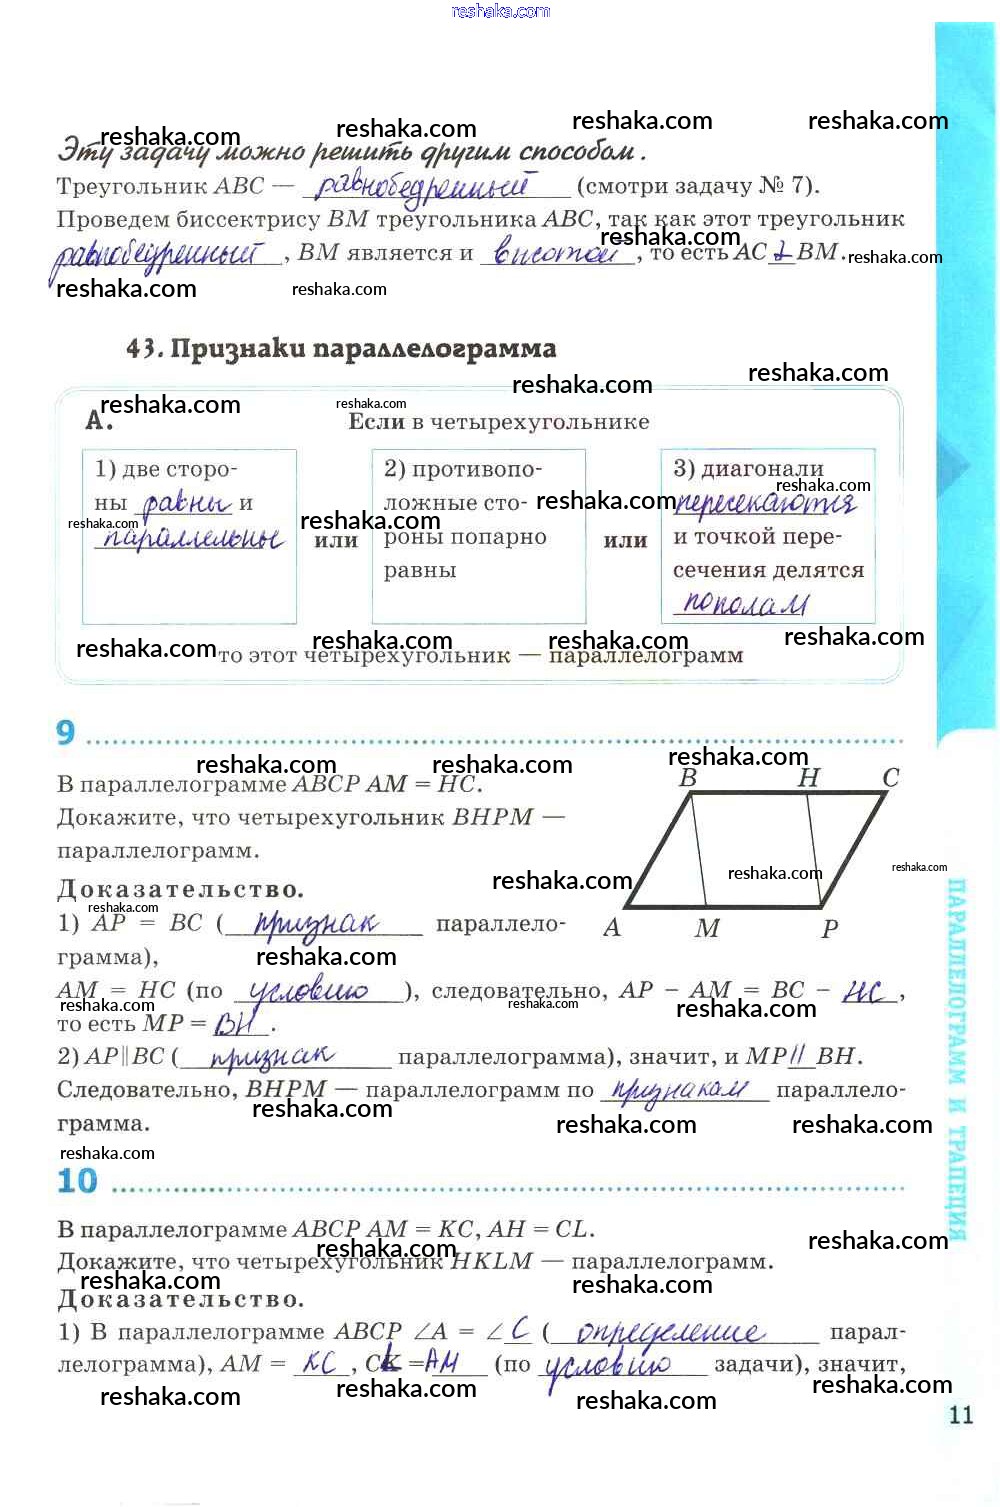 reshaka.com
Эту задачу можно решить другим способом.
Треугольник ABC — равнобедренный (смотри задачу № 7).
Проведем биссектрису BM треугольника ABC, так как этот треугольник
равнобедренный, BM является и высотой, то есть AC ⊥ BM.
43. Признаки параллелограмма
А. Если в четырехугольнике
1) две сторо-
ны равны и
параллельны
или
2) противопо-
ложные сто-
роны попарно
равны
или
3) диагонали
пересекаются
и точкой пере-
сечения делятся
пополам
то этот четырехугольник — параллелограмм
9
В параллелограмме ABCP AM = HC.
Докажите, что четырехугольник BHPM —
параллелограмм.
B H C
A M P
Доказательство.
1) AP = BC (признак параллело-
грамма),
AM = HC (по условию), следовательно, AP − AM = BC − HC,
то есть MP = BH.
2) AP || BC (признак параллелограмма), значит, и MP || BH.
Следовательно, BHPM — параллелограмм по признакам параллело-
грамма.
10
В параллелограмме ABCP AM = KC, AH = CL.
Докажите, что четырехугольник HKLM — параллелограмм.
Доказательство.
1) В параллелограмме ABCP ∠A = ∠C (определение парал-
лелограмма), AM = KC, CK = AM (по условию задачи), значит,
ПАРАЛЛЕЛОГРАММ И ТРАПЕЦИЯ
11